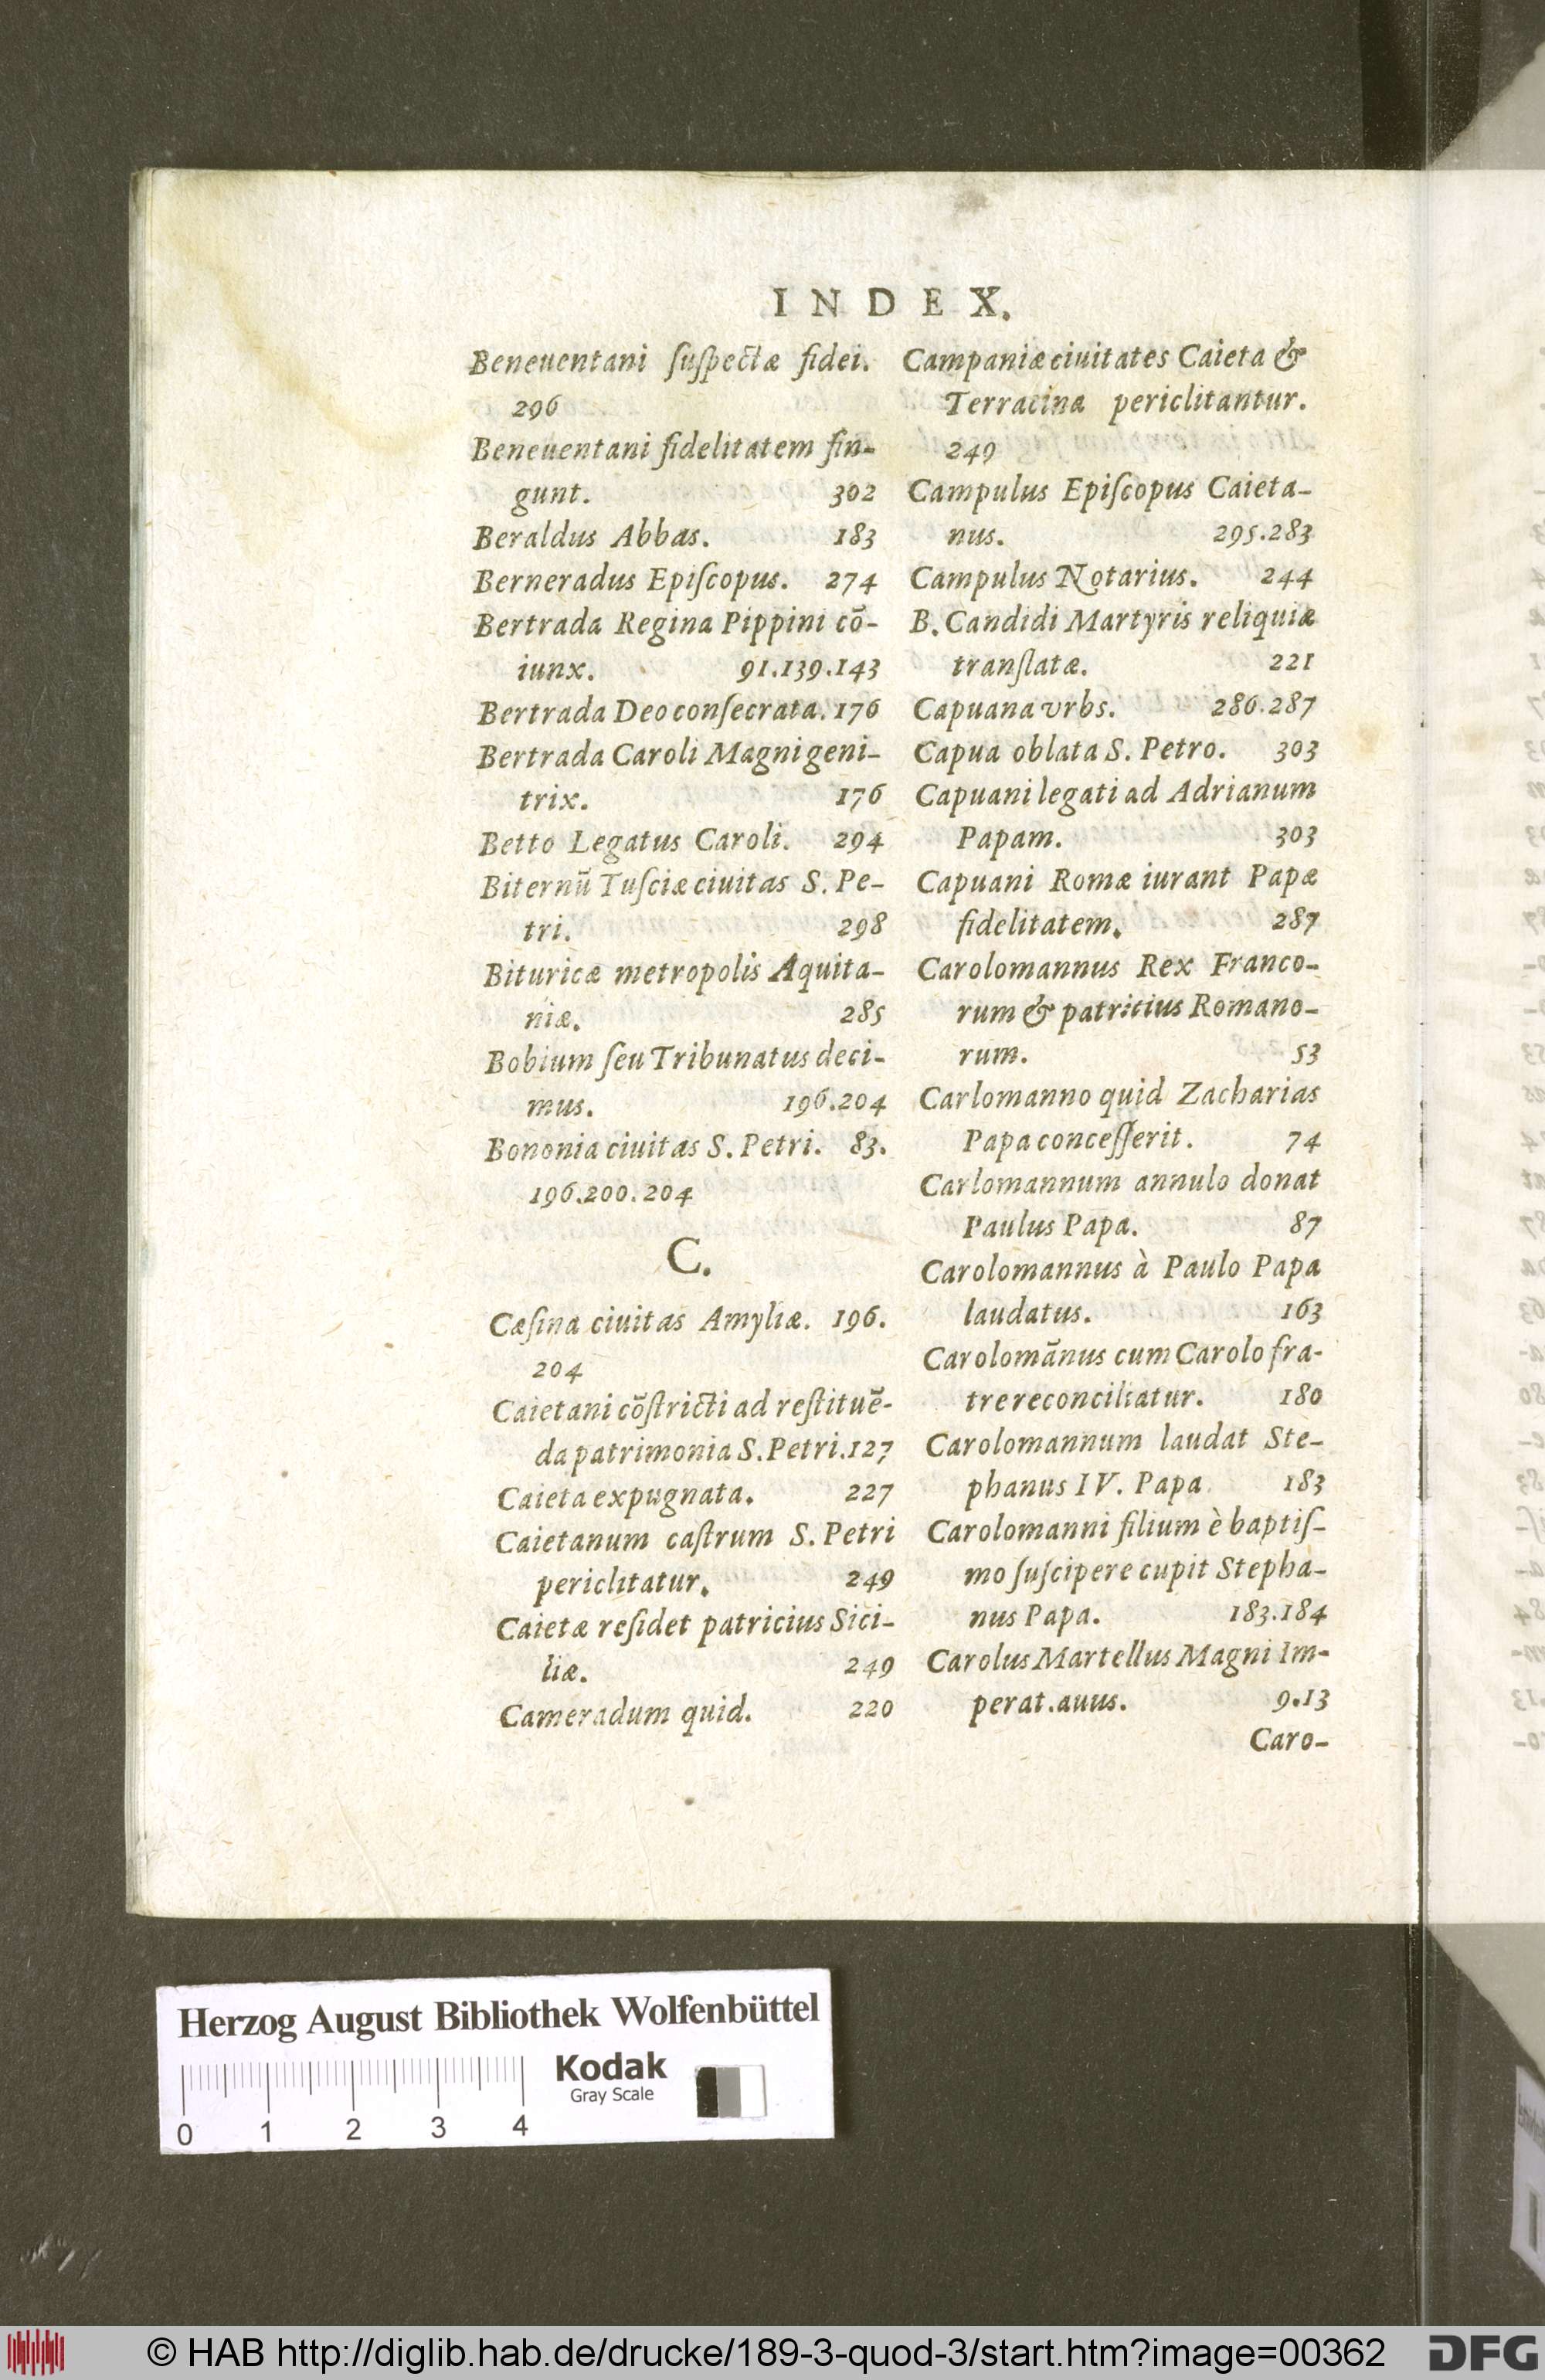 INDEX.
Beneuentani ſuſpectæ fidei.
296
Beneuentani fidelitatem fin-
gunt. 302
Beraldus Abbas. 183
Berneradus Epiſcopus. 274
Bertrada Regina Pippini cō-
iunx. 91.139.143
Bertrada Deo conſecrata. 176
Bertrada Caroli Magni geni-
trix. 176
Betto Legatus Caroli. 294
Biternū Tuſciæ ciuitas S. Pe-
tri. 298
Bituricæ metropolis Aquita-
niæ. 285
Bobium ſeu Tribunatus deci-
mus. 196.204
Bononia ciuitas S. Petri. 83.
196.200.204
C.
Cæſina ciuitas Amyliæ. 196.
204
Caietani cōſtricti ad reſtituē-
da patrimonia S. Petri. 127
Caieta expugnata. 227
Caietanum caſtrum S. Petri
periclitatur. 249
Caietæ reſidet patricius Sici-
liæ. 249
Cameradum quid. 220
Campaniæ ciuitates Caieta &
Terracina periclitantur.
249
Campulus Epiſcopus Caieta-
nus. 295.283
Campulus Notarius. 244
B. Candidi Martyris reliquiæ
tranſlatæ. 221
Capuana vrbs. 286.287
Capua oblata S. Petro. 303
Capuani legati ad Adrianum
Papam. 303
Capuani Romæ iurant Papæ
fidelitatem. 287
Carolomannus Rex Franco-
rum & patritius Romano-
rum. 53
Carlomanno quid Zacharias
Papa conceſſerit. 74
Carlomannum annulo donat
Paulus Papa. 87
Carolomannus à Paulo Papa
laudatus. 163
Carolomānus cum Carolo fra-
tre reconciliatur. 180
Carolomannum laudat Ste-
phanus IV. Papa. 183
Carolomanni filium è baptiſ-
mo ſuſcipere cupit Stepha-
nus Papa. 183.184
Carolus Martellus Magni Im-
perat. auus. 9.13
Caro-
Herzog August Bibliothek Wolfenbüttel
Kodak
Gray Scale
0 1 2 3 4
© HAB http://diglib.hab.de/drucke/189-3-quod-3/start.htm?image=00362
DFG